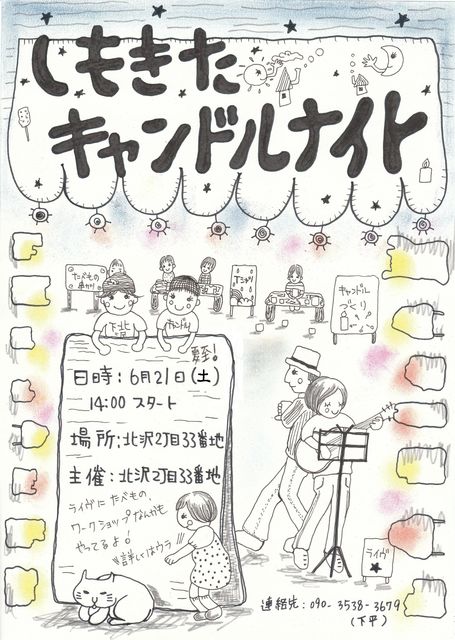 しもきた
キャンドルナイト
たべもの
あり
Tシャツ
キャンドル
づくり
下北
キャンドル
夏至!
日時:6月21日(土)
14:00 スタート
場所:北沢2丁目33番地
主催:北沢2丁目33番地
ライヴにたべもの、
ワークショップなんかも
やってるよ!
詳しくはウラ
ライヴ
連絡先:090-3538-3679
(下平)